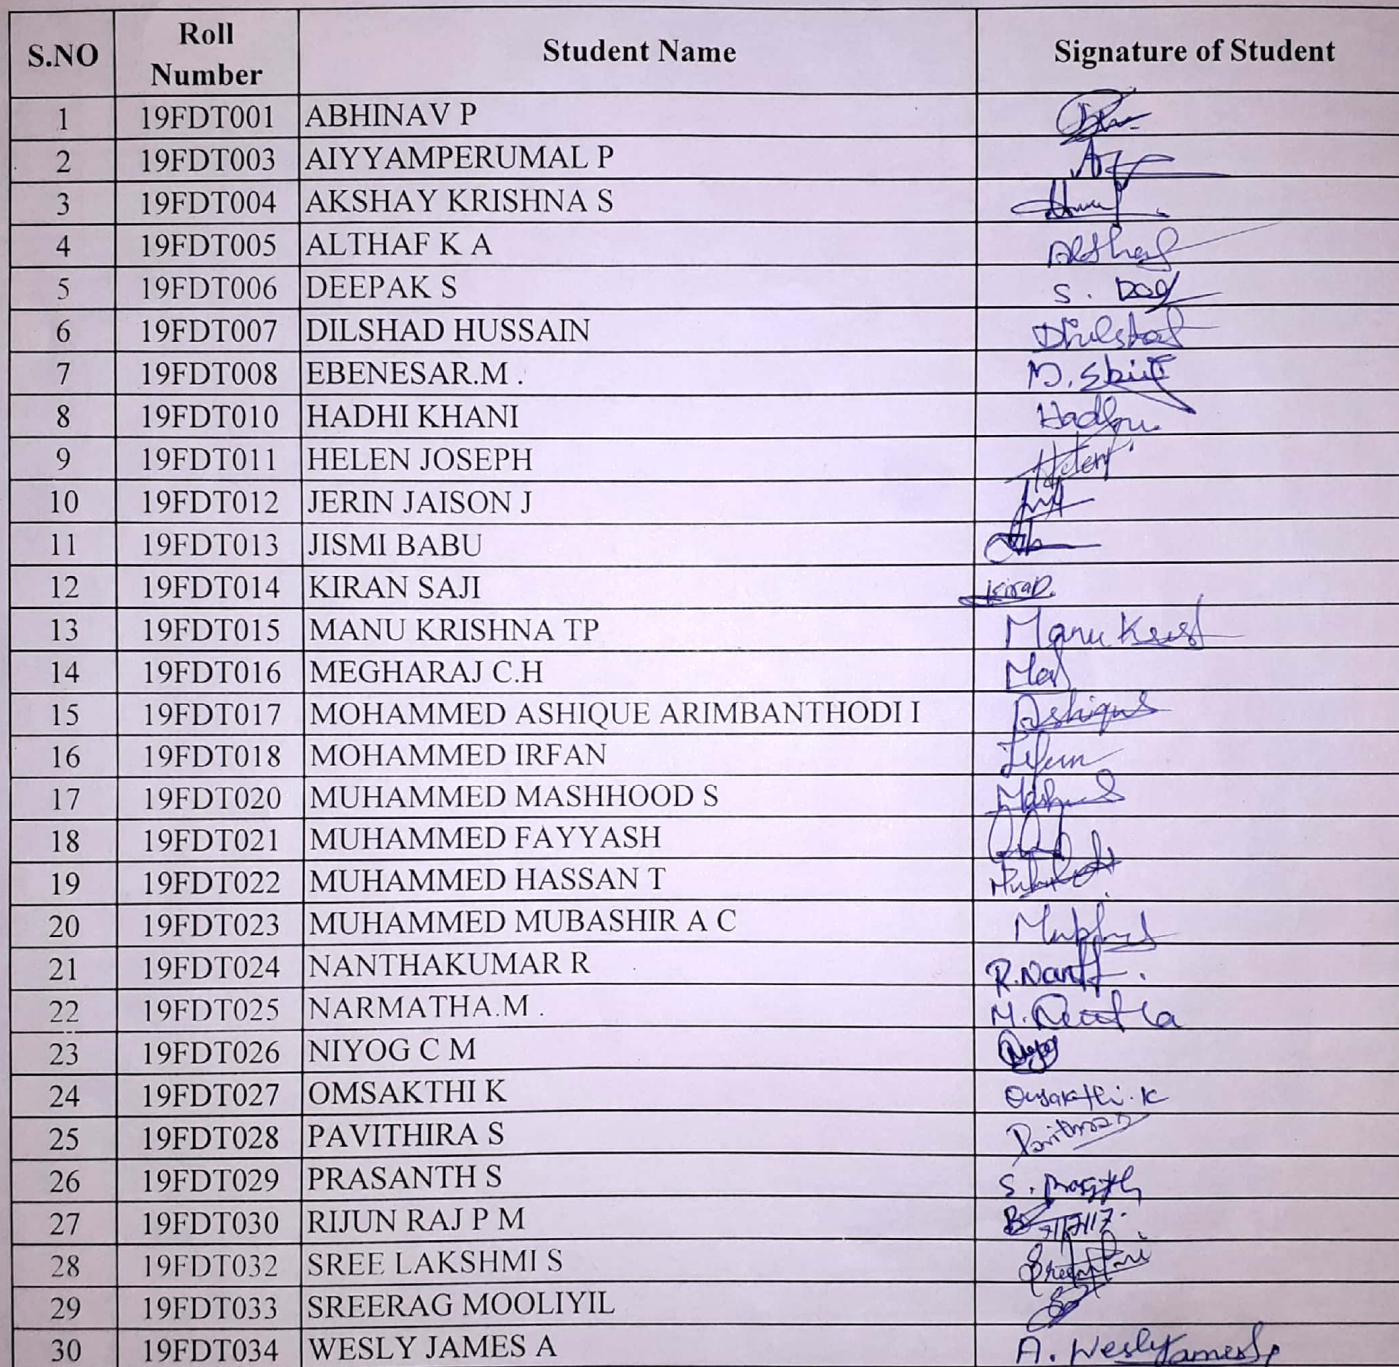 S.NO Roll Number Student Name Signature of Student
1 19FDT001 ABHINAV P
2 19FDT003 AIYYAMPERUMAL P
3 19FDT004 AKSHAY KRISHNA S
4 19FDT005 ALTHAF K A Althaf
5 19FDT006 DEEPAK S
6 19FDT007 DILSHAD HUSSAIN
7 19FDT008 EBENESAR.M .
8 19FDT010 HADHI KHANI
9 19FDT011 HELEN JOSEPH Helen
10 19FDT012 JERIN JAISON J
11 19FDT013 JISMI BABU
12 19FDT014 KIRAN SAJI Kiran.
13 19FDT015 MANU KRISHNA TP Manu
14 19FDT016 MEGHARAJ C.H
15 19FDT017 MOHAMMED ASHIQUE ARIMBANTHODI I Ashique
16 19FDT018 MOHAMMED IRFAN
17 19FDT020 MUHAMMED MASHHOOD S
18 19FDT021 MUHAMMED FAYYASH
19 19FDT022 MUHAMMED HASSAN T
20 19FDT023 MUHAMMED MUBASHIR A C
21 19FDT024 NANTHAKUMAR R
22 19FDT025 NARMATHA.M .
23 19FDT026 NIYOG C M
24 19FDT027 OMSAKTHI K Omsakthi.K
25 19FDT028 PAVITHIRA S
26 19FDT029 PRASANTH S
27 19FDT030 RIJUN RAJ P M
28 19FDT032 SREE LAKSHMI S
29 19FDT033 SREERAG MOOLIYIL
30 19FDT034 WESLY JAMES A A. Wesly James